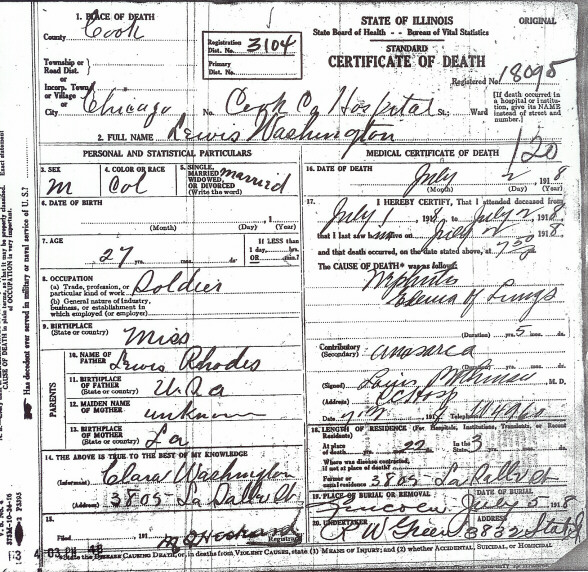 1. PLACE OF DEATH
County Cook
Township or
Road Dist.
or
Incorp. Town
or Village
or
City Chicago No. Cook Co Hospital St.; Ward
Registration
Dist. No. 3104
Primary
Dist. No.
STATE OF ILLINOIS ORIGINAL
State Board of Health -- Bureau of Vital Statistics
STANDARD
CERTIFICATE OF DEATH
Registered No. 18095
[If death occurred in
a hospital or institu-
tion, give its NAME
instead of street and
number.]
2. FULL NAME Lewis Washington
120
PERSONAL AND STATISTICAL PARTICULARS
3. SEX
M
4. COLOR OR RACE
Col
5. SINGLE,
MARRIED
WIDOWED,
OR DIVORCED
(Write the word)
married
6. DATE OF BIRTH
(Month) (Day) (Year)
7. AGE
27 yrs. mos. ds.
If LESS than
1 day, hrs.
OR min.?
8. OCCUPATION
(a) Trade, profession, or
particular kind of work Soldier
(b) General nature of industry,
business, or establishment in
which employed (or employer)
9. BIRTHPLACE
(State or country) Miss
PARENTS
10. NAME OF
FATHER Lewis Rhodes
11. BIRTHPLACE
OF FATHER
(State or country) U.S.a
12. MAIDEN NAME
OF MOTHER unknown
13. BIRTHPLACE
OF MOTHER
(State or country) La
14. THE ABOVE IS TRUE TO THE BEST OF MY KNOWLEDGE
(Informant) Clara Washington
(Address) 3805 - La Salle St
15.
Filed 191
Registrar
MEDICAL CERTIFICATE OF DEATH
16. DATE OF DEATH
July 2 1918
(Month) (Day) (Year)
17. I HEREBY CERTIFY, That I attended deceased from
July 1 1918 to July 2 1918
that I last saw him alive on July 2 1918
and that death occurred, on the date stated above, at 7:50
The CAUSE OF DEATH* was as follows:
Nephritis
Edema of Lungs
(Duration) yrs. 5 mos. ds.
Contributory
(Secondary) anasarca
(Duration) yrs. mos. ds.
(Signed) M.D.
(Address)
191 Telephone
18. LENGTH OF RESIDENCE (For Hospitals, Institutions, Transients, or Recent
Residents)
At place
of death In the
Where was disease contracted,
if not at place of death?
Former or
usual residence 3805 - La Salle St
19. PLACE OF BURIAL OR REMOVAL DATE OF BURIAL
Lincoln July 5 1918
20. UNDERTAKER ADDRESS
R W Green 3832 State St
*State the DISEASE CAUSING DEATH, or, in deaths from VIOLENT CAUSES, state (1) MEANS OF INJURY; and (2) whether ACCIDENTAL, SUICIDAL, or HOMICIDAL
Has decedent ever served in military or naval service of U. S.?